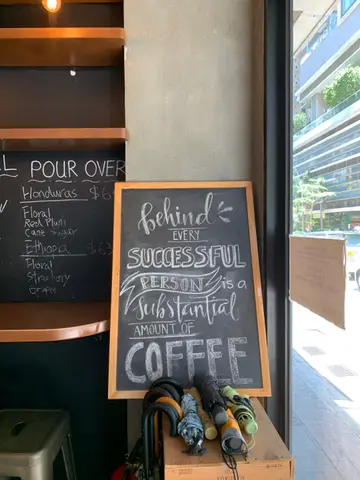 POUR OVER
Honduras $6
Floral
Red Plum
Cane Sugar
Ethiopia
Floral
Strawberry
Grape
behind
EVERY
SUCCESSFUL
PERSON is a
substantial
AMOUNT OF
COFFEE